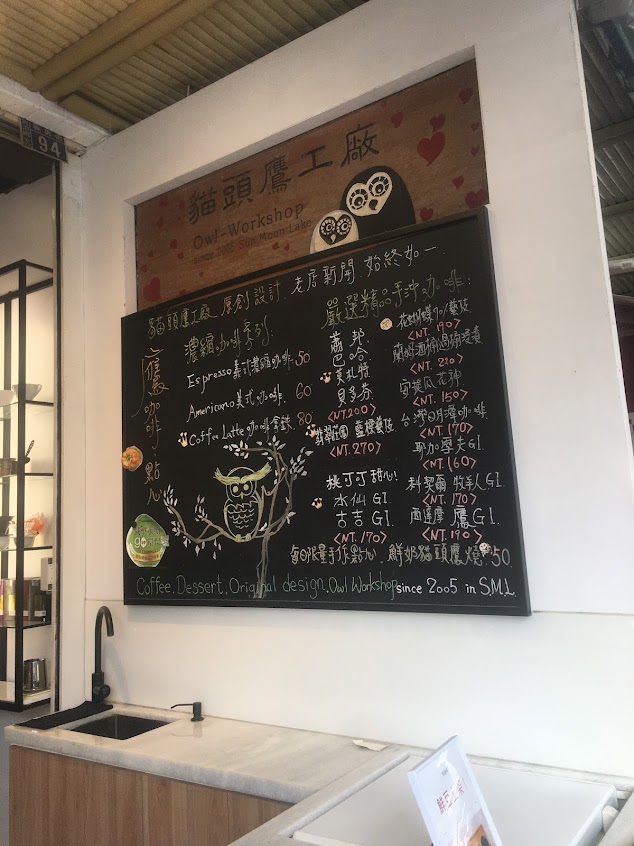 94
貓頭鷹工廠
Owl-Workshop
since 2005 Sun Moon Lake
貓頭鷹工廠 原創設計．老店新開．始終如一．
鷹咖啡．點心
濃縮咖啡系列：
Espresso義式濃縮咖啡 50
Americano美式咖啡 60
Coffee Latte咖啡拿鐵 80
嚴選精品手沖咖啡：
蕭邦
巴哈
莫札特
貝多芬
<NT.200>
翡翠莊園 藍標藝妓
<NT.270>
桃可可甜心
水仙 G1
古吉 G1
<NT.170>
花蝴蝶 藝妓
<NT.190>
<NT.220>
安提瓜花神
<NT.150>
台灣日月潭咖啡
<NT.170>
耶加 夫G1
<NT.160>
利契爾 牧羊人G1
<NT.170>
西達摩 鷹G1
<NT.190>
每日限量手作點心 鮮奶貓頭鷹燒 50
Coffee.Dessert.Original design.Owl Workshop since 2005 in S.M.L